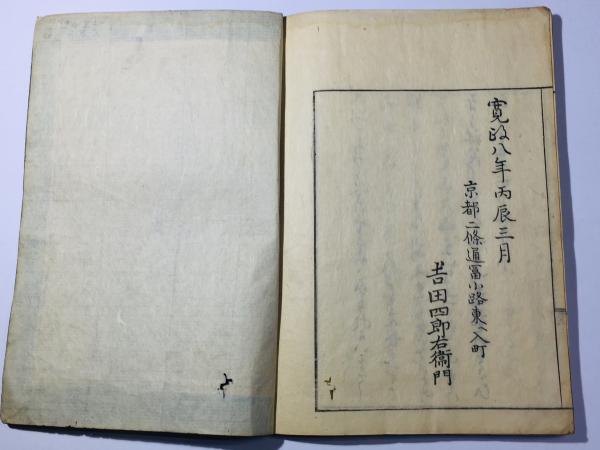 寛政八年丙辰三月
京都二條通冨小路東へ入町
吉田四郎右衛門